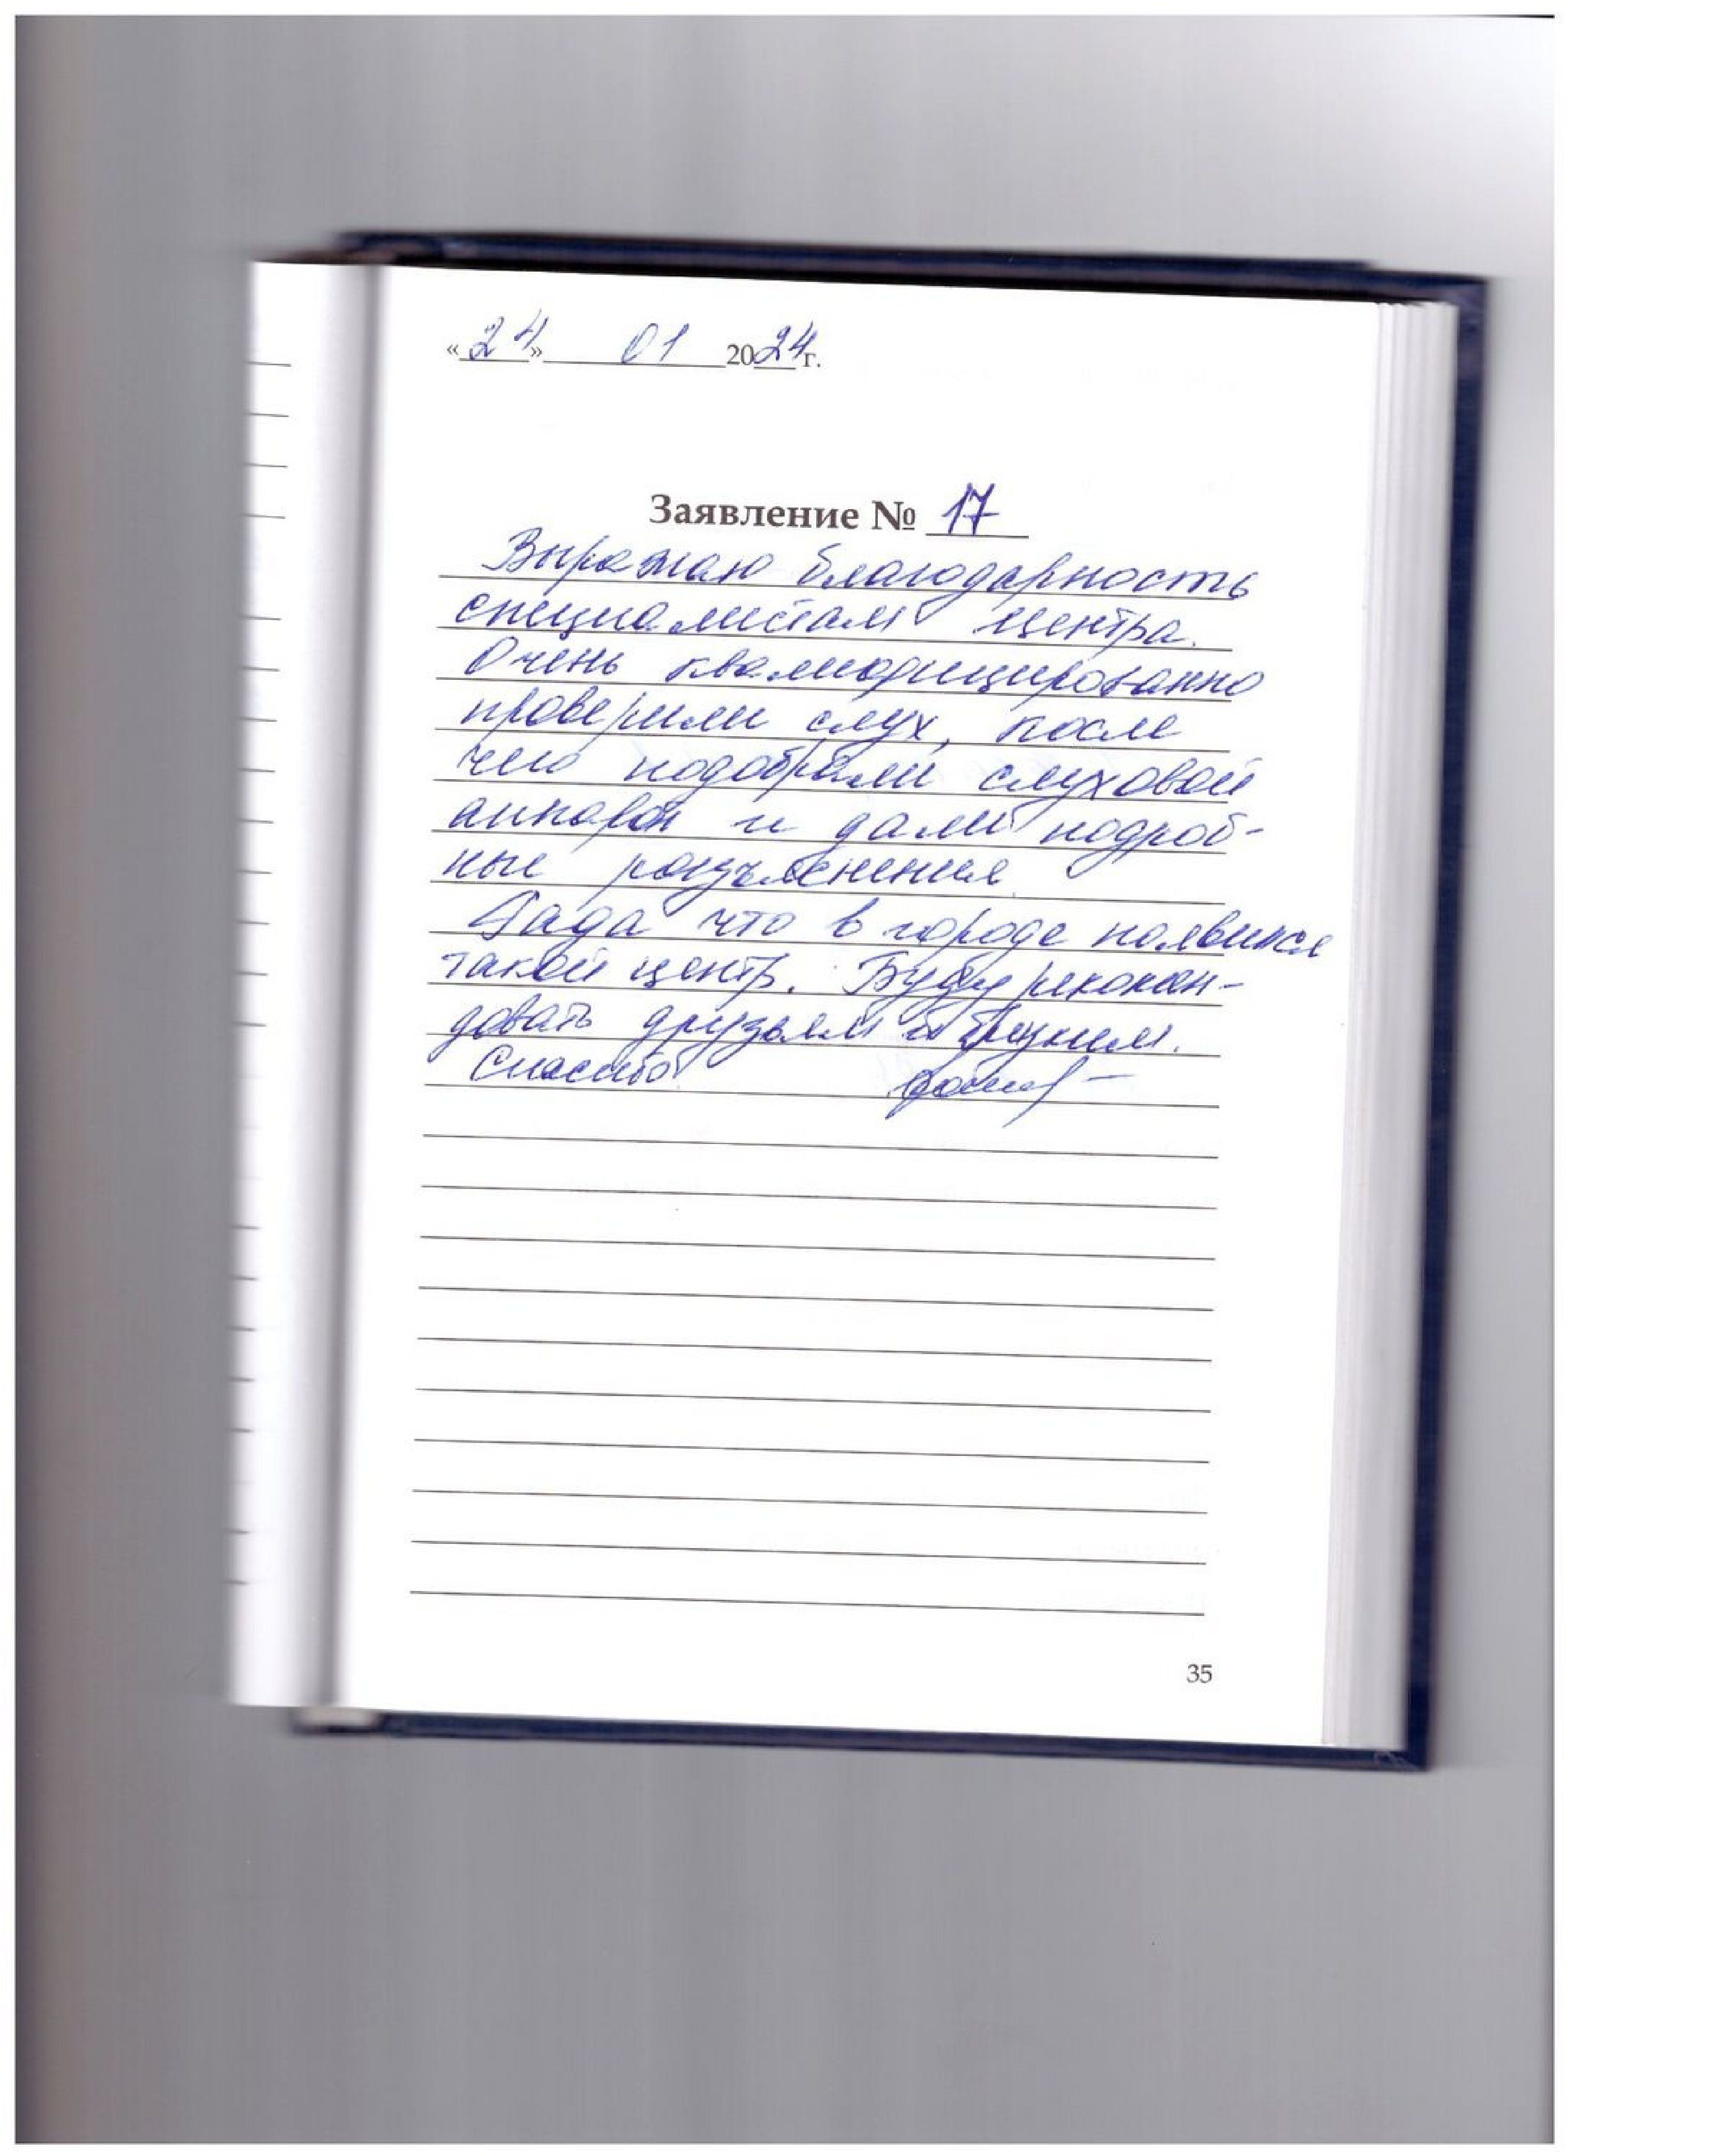 «24» 01 2024г.
Заявление № 17
Выражаю благодарность
специалистам центра.
Очень квалифицированно
проверили слух, после
чего подобрали слуховой
аппарат и дали подроб-
ные разъяснения.
Рада что в городе появился
такой центр. Буду рекомен-
довать друзьям и близким.
Спасибо
35